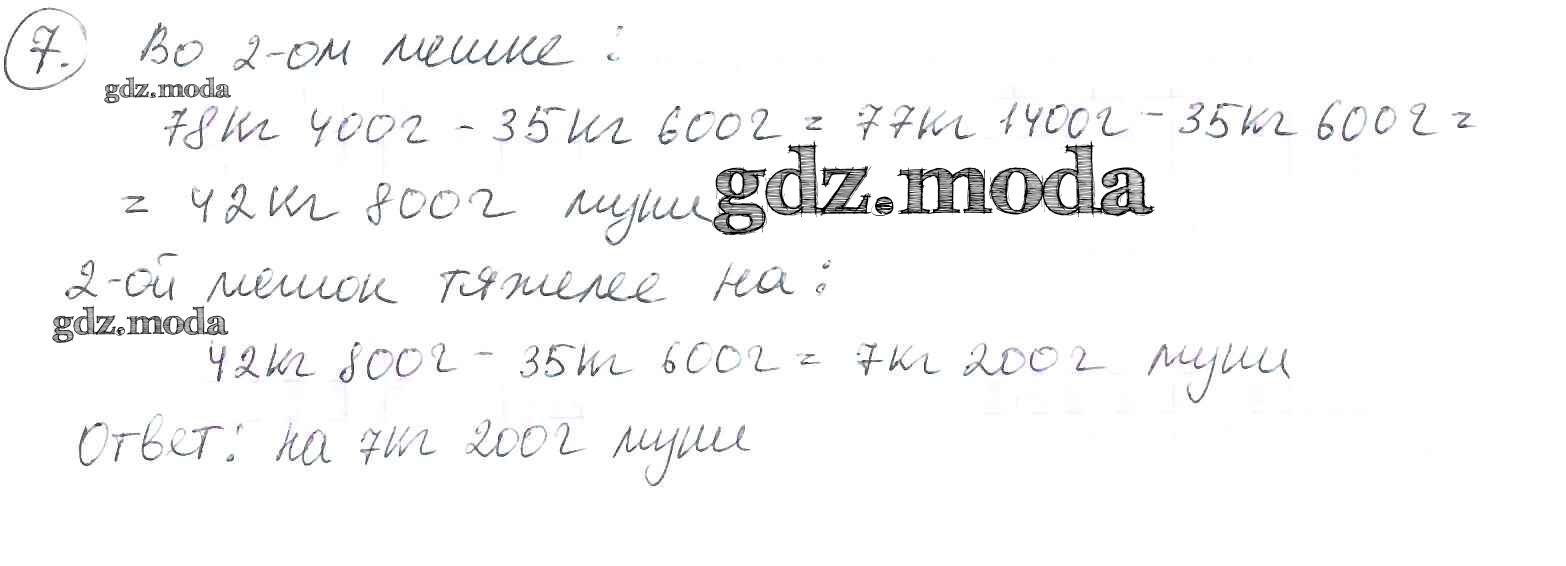 7. Во 2-ом мешке:
gdz.moda
78кг 400г - 35кг 600г = 77кг 1400г - 35кг 600г =
= 42кг 800г муки
gdz.moda
2-ой мешок тяжелее на:
gdz.moda
42кг 800г - 35кг 600г = 7кг 200г муки
Ответ: на 7кг 200г муки